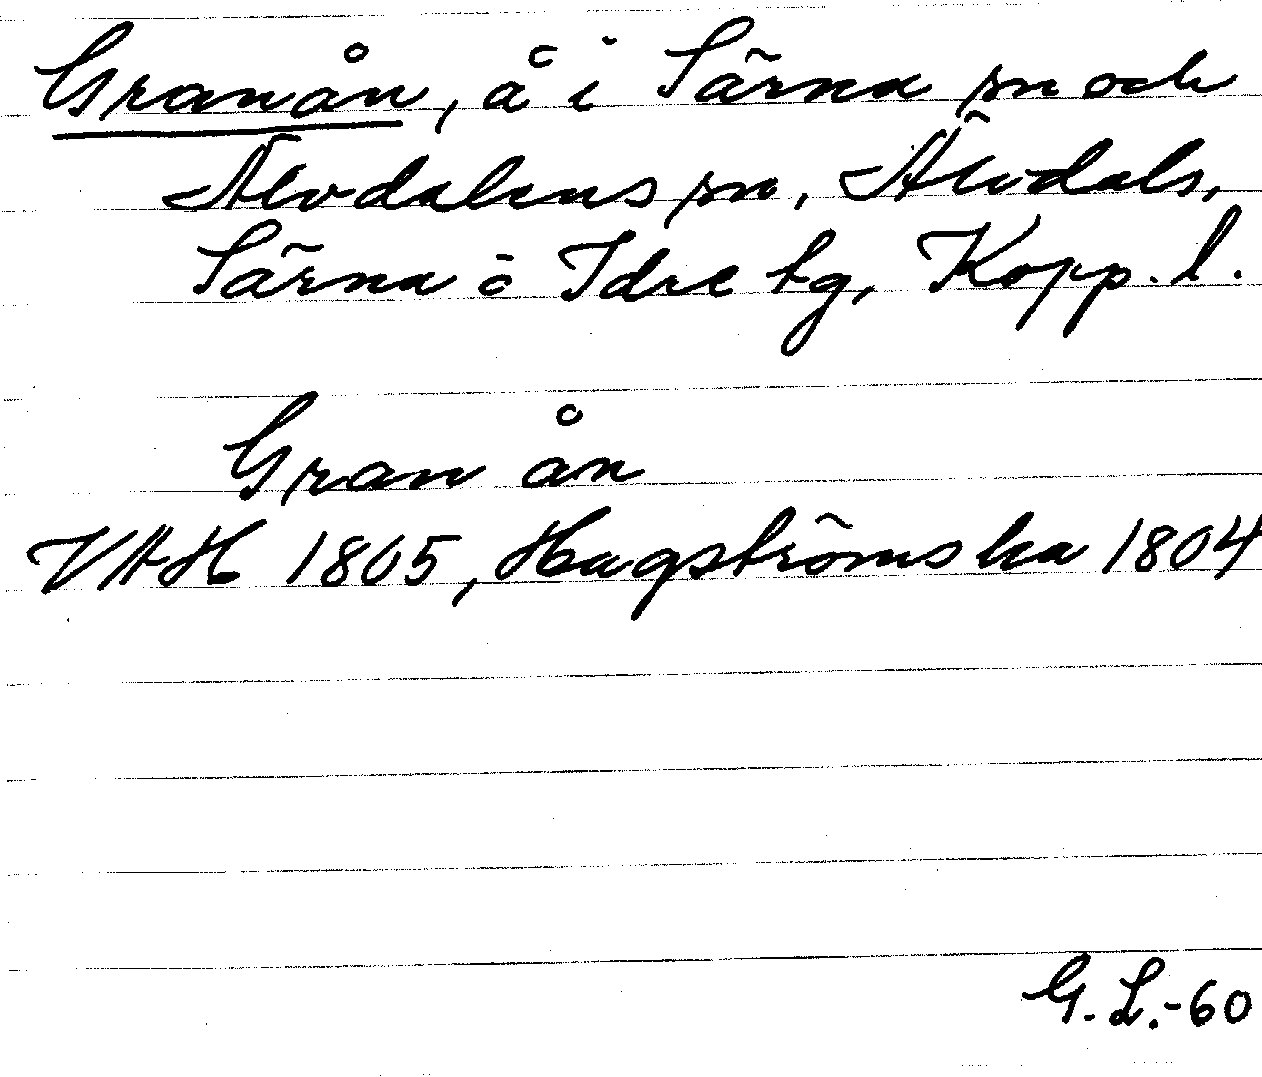 Granån, å i Särna sn och
Älvdalens sn, Älvdals,
Särna o Idre tg, Kopp. l.
Gran ån
VAH 1805, Hagströmska 1804
G. L.-60